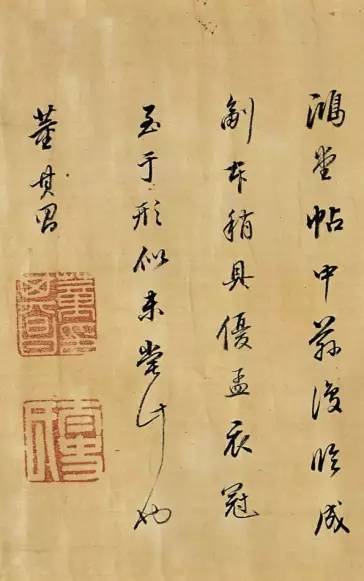 鴻堂帖中茲復臨成
副本稍具優孟衣冠
至于形似未嘗計也
董其昌